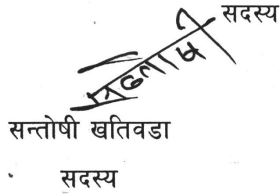 सदस्य
सन्तोषी खतिवडा
सदस्य